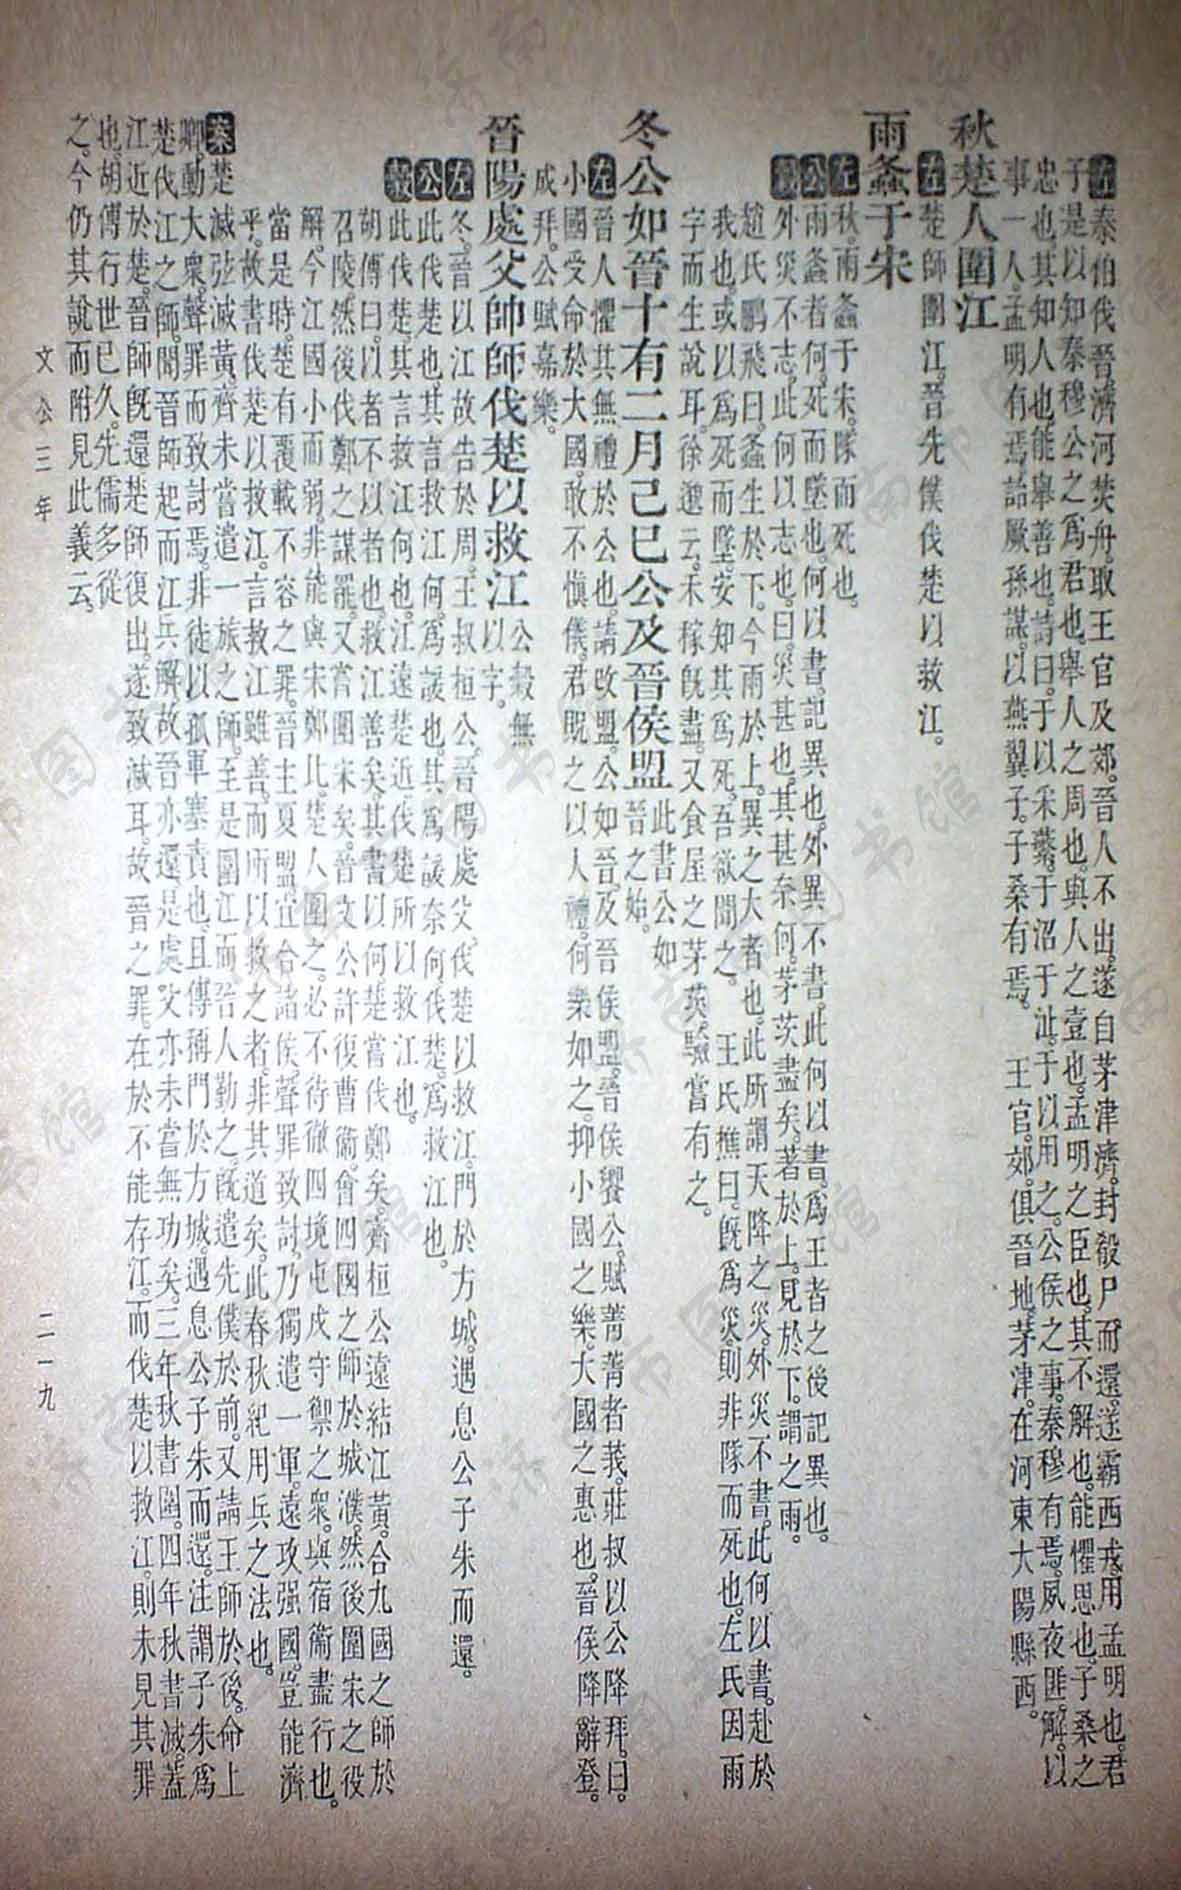 左秦伯伐晉濟河焚舟取王官及郊晉人不出遂自茅津濟封殽尸而還遂霸西戎用孟明也君
子是以知秦穆公之爲君也舉人之周也與人之壹也孟明之臣也其不解也能懼思也子桑之
忠也其知人也能舉善也詩曰于以采蘩于沼于沚于以用之公侯之事秦穆有焉夙夜匪解以
事一人孟明有焉詒厥孫謀以燕翼子子桑有焉。　王官郊俱晉地茅津在河東大陽縣西。
秋楚人圍江
左楚師圍江晉先僕伐楚以救江。
雨螽于宋
左秋雨螽于宋隊而死也。
公雨螽者何死而墜也何以書記異也外異不書此何以書爲王者之後記異也。
穀外災不志此何以志也曰災甚也其甚奈何茅茨盡矣著於上見於下謂之雨。
趙氏鵬飛曰螽生於下今雨於上異之大者也此所謂天降之災外災不書此何以書赴於
我也或以爲死而墜安知其爲死吾欲聞之。　王氏樵曰旣爲災則非隊而死也左氏因雨
字而生說耳徐邈云禾稼旣盡又食屋之茅茨驗嘗有之。
冬公如晉十有二月己巳公及晉侯盟此書公如晉之始。
左晉人懼其無禮於公也請改盟公如晉及晉侯盟晉侯饗公賦菁菁者莪莊叔以公降拜曰
小國受命於大國敢不愼儀君貺之以大禮何樂如之抑小國之樂大國之惠也晉侯降辭登
成拜公賦嘉樂。
晉陽處父帥師伐楚以救江公穀無以字。
左冬晉以江故告於周王叔桓公晉陽處父伐楚以救江門於方城遇息公子朱而還。
公此伐楚也其言救江何爲諼也其爲諼奈何伐楚爲救江也。
穀此伐楚其言救江何也江遠楚近伐楚所以救江也。
胡傳曰以者不以者也救江善矣其書以何楚嘗伐鄭矣齊桓公遠結江黃合九國之師於
召陵然後伐鄭之謀罷又嘗圍宋矣晉文公許復曹衞會四國之師於城濮然後圍宋之役
解今江國小而弱非能與宋鄭比楚人圍之必不待徹四境屯戍守禦之衆與宿衞盡行也。
當是時楚有覆載不容之罪晉主夏盟宜合諸侯聲罪致討乃獨遣一軍遠攻强國豈能濟
乎故書伐楚以救江言救江雖善而所以救之者非其道矣此春秋紀用兵之法也。
案楚滅弦滅黃齊未嘗遣一旅之師至是圍江而晉人勤之旣遣先僕於前又請王師於後命上
卿動大衆聲罪而致討焉非徒以孤軍塞責也且傳稱門於方城遇息公子朱而還注謂子朱爲
楚伐江之師聞晉師起而江兵解故晉亦還是處父亦未嘗無功矣三年秋書圍四年秋書滅蓋
江近於楚晉師旣還楚師復出遂致滅耳故晉之罪在於不能存江而伐楚以救江則未見其罪
也胡傳行世已久先儒多從
之今仍其說而附見此義云。
文公三年
二一九